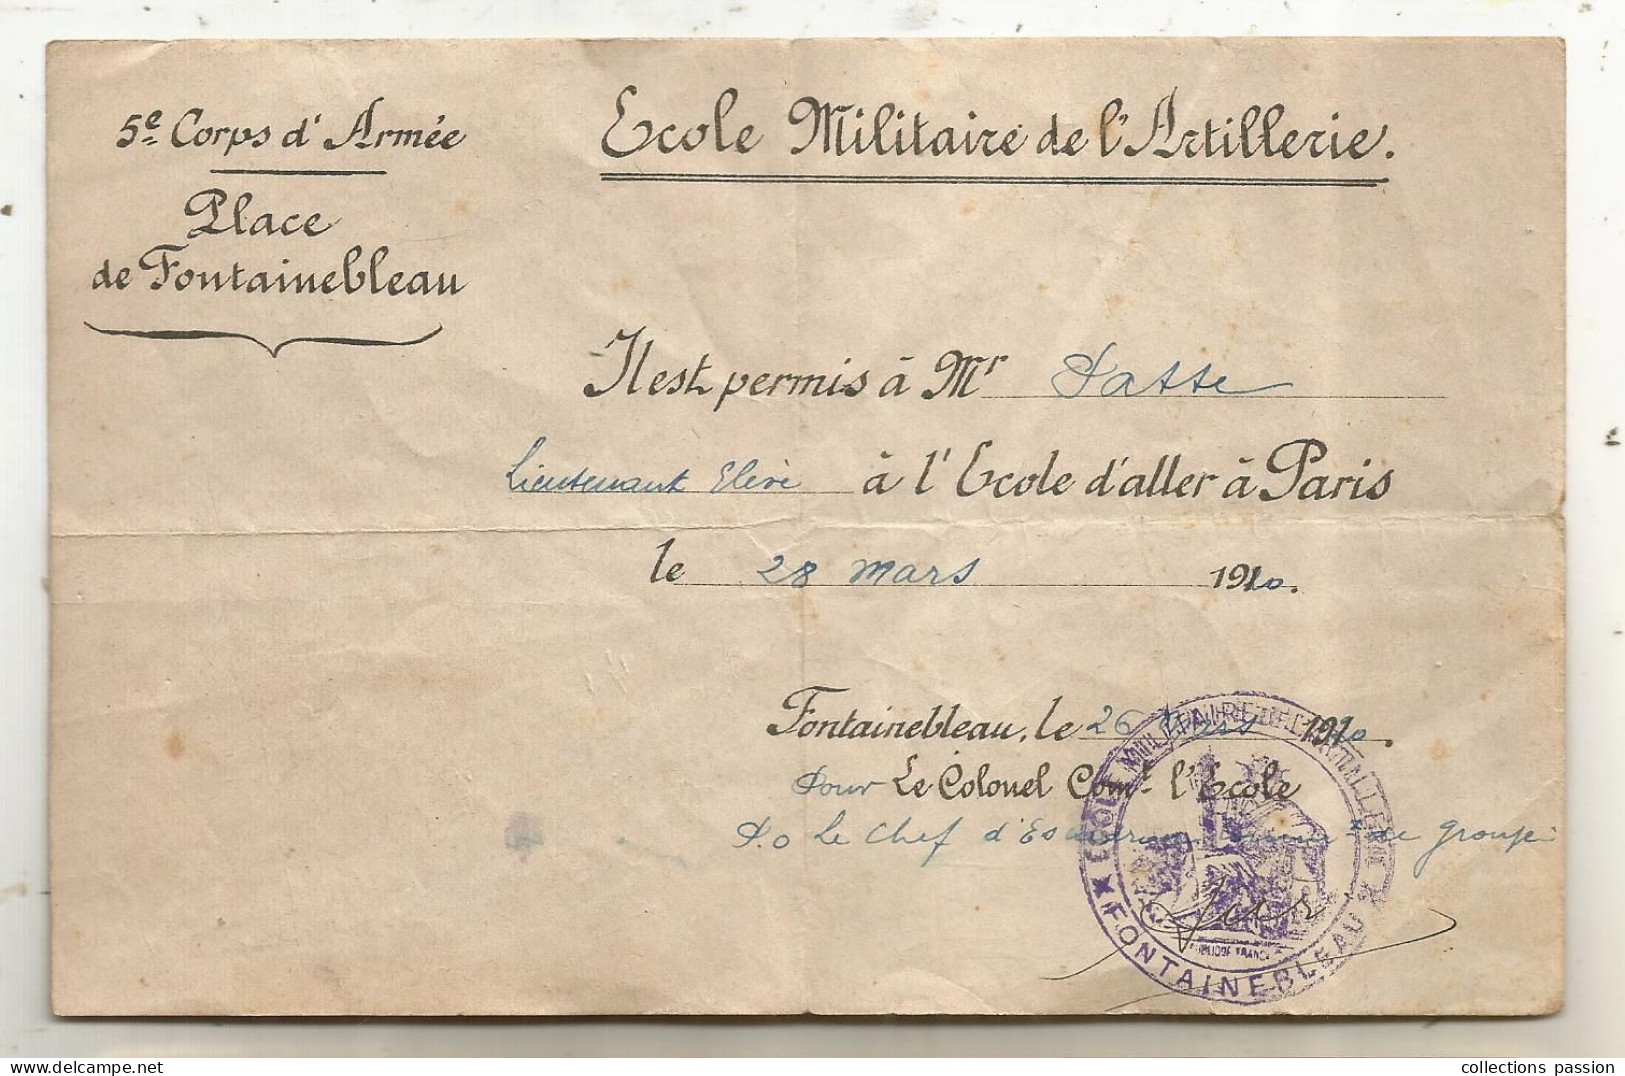 5e Corps d'Armée
Place
de Fontainebleau
Ecole Militaire de l'Artillerie.
Il est permis à Mr Patte
Lieutenant Elève à l'Ecole d'aller à Paris
le 28 mars 1920.
Fontainebleau, le 26 mars 1920.
Pour Le Colonel Comt. l'Ecole
P.o Le Chef d'Escadron de groupe
ECOLE MILITAIRE DE L'ARTILLERIE
REPUBLIQUE FRANCAISE
FONTAINEBLEAU
collections passion